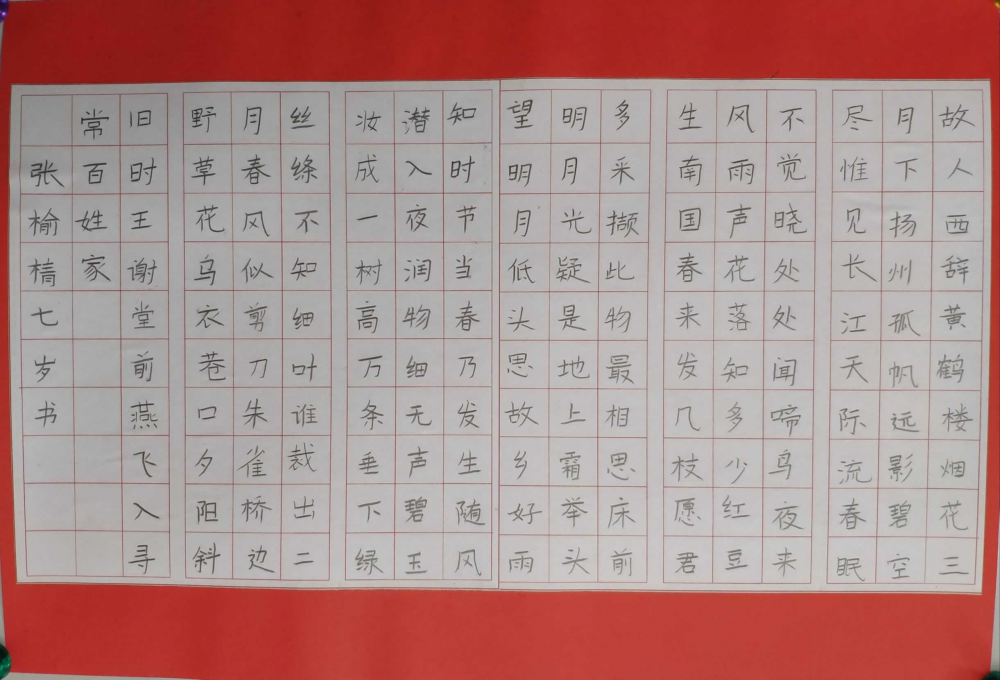 故人西辞黄鹤楼烟花三
月下扬州孤帆远影碧空
尽惟见长江天际流春眠
不觉晓处处闻啼鸟夜来
风雨声花落知多少红豆
生南国春来发几枝愿君
多采撷此物最相思床前
明月光疑是地上霜举头
望明月低头思故乡好雨
知时节当春乃发生随风
潜入夜润物细无声碧玉
妆成一树高万条垂下绿
丝绦不知细叶谁裁出二
月春风似剪刀朱雀桥边
野草花乌衣巷口夕阳斜
旧时王谢堂前燕飞入寻
常百姓家
张榆棈七岁书